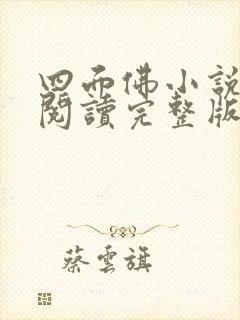 四面佛小說
閱讀完整版
蔡雲旗